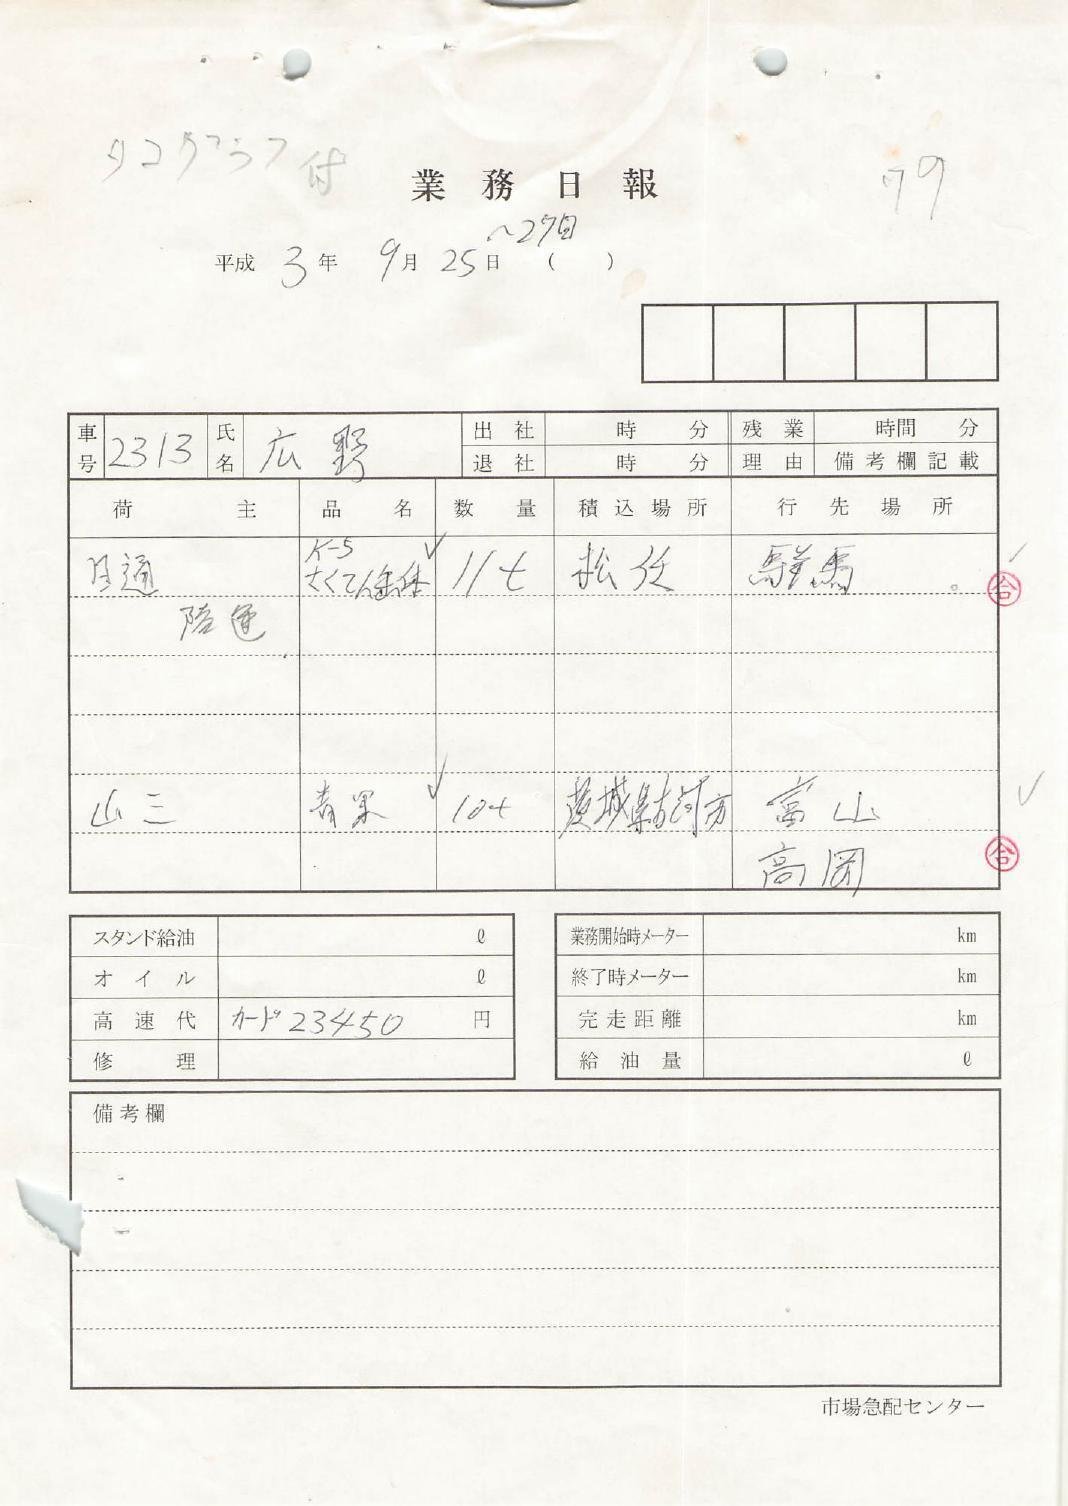 タコグラフ付
業務日報
79
〜27日
平成 3年 9月 25日 ( )
車号 2313 氏名 広野 出社 時 分 残業 時間 分
退社 時 分 理由 備考欄記載
荷主 品名 数量 積込場所 行先場所
K-5
日通 11t 松任 群馬
合
陸運
山三 青果 10t 茨城県古河方 富山
高岡 合
スタンド給油 ℓ 業務開始時メーター km
オイル ℓ 終了時メーター km
高速代 カード23450 円 完走距離 km
修理 給油量 ℓ
備考欄
市場急配センター